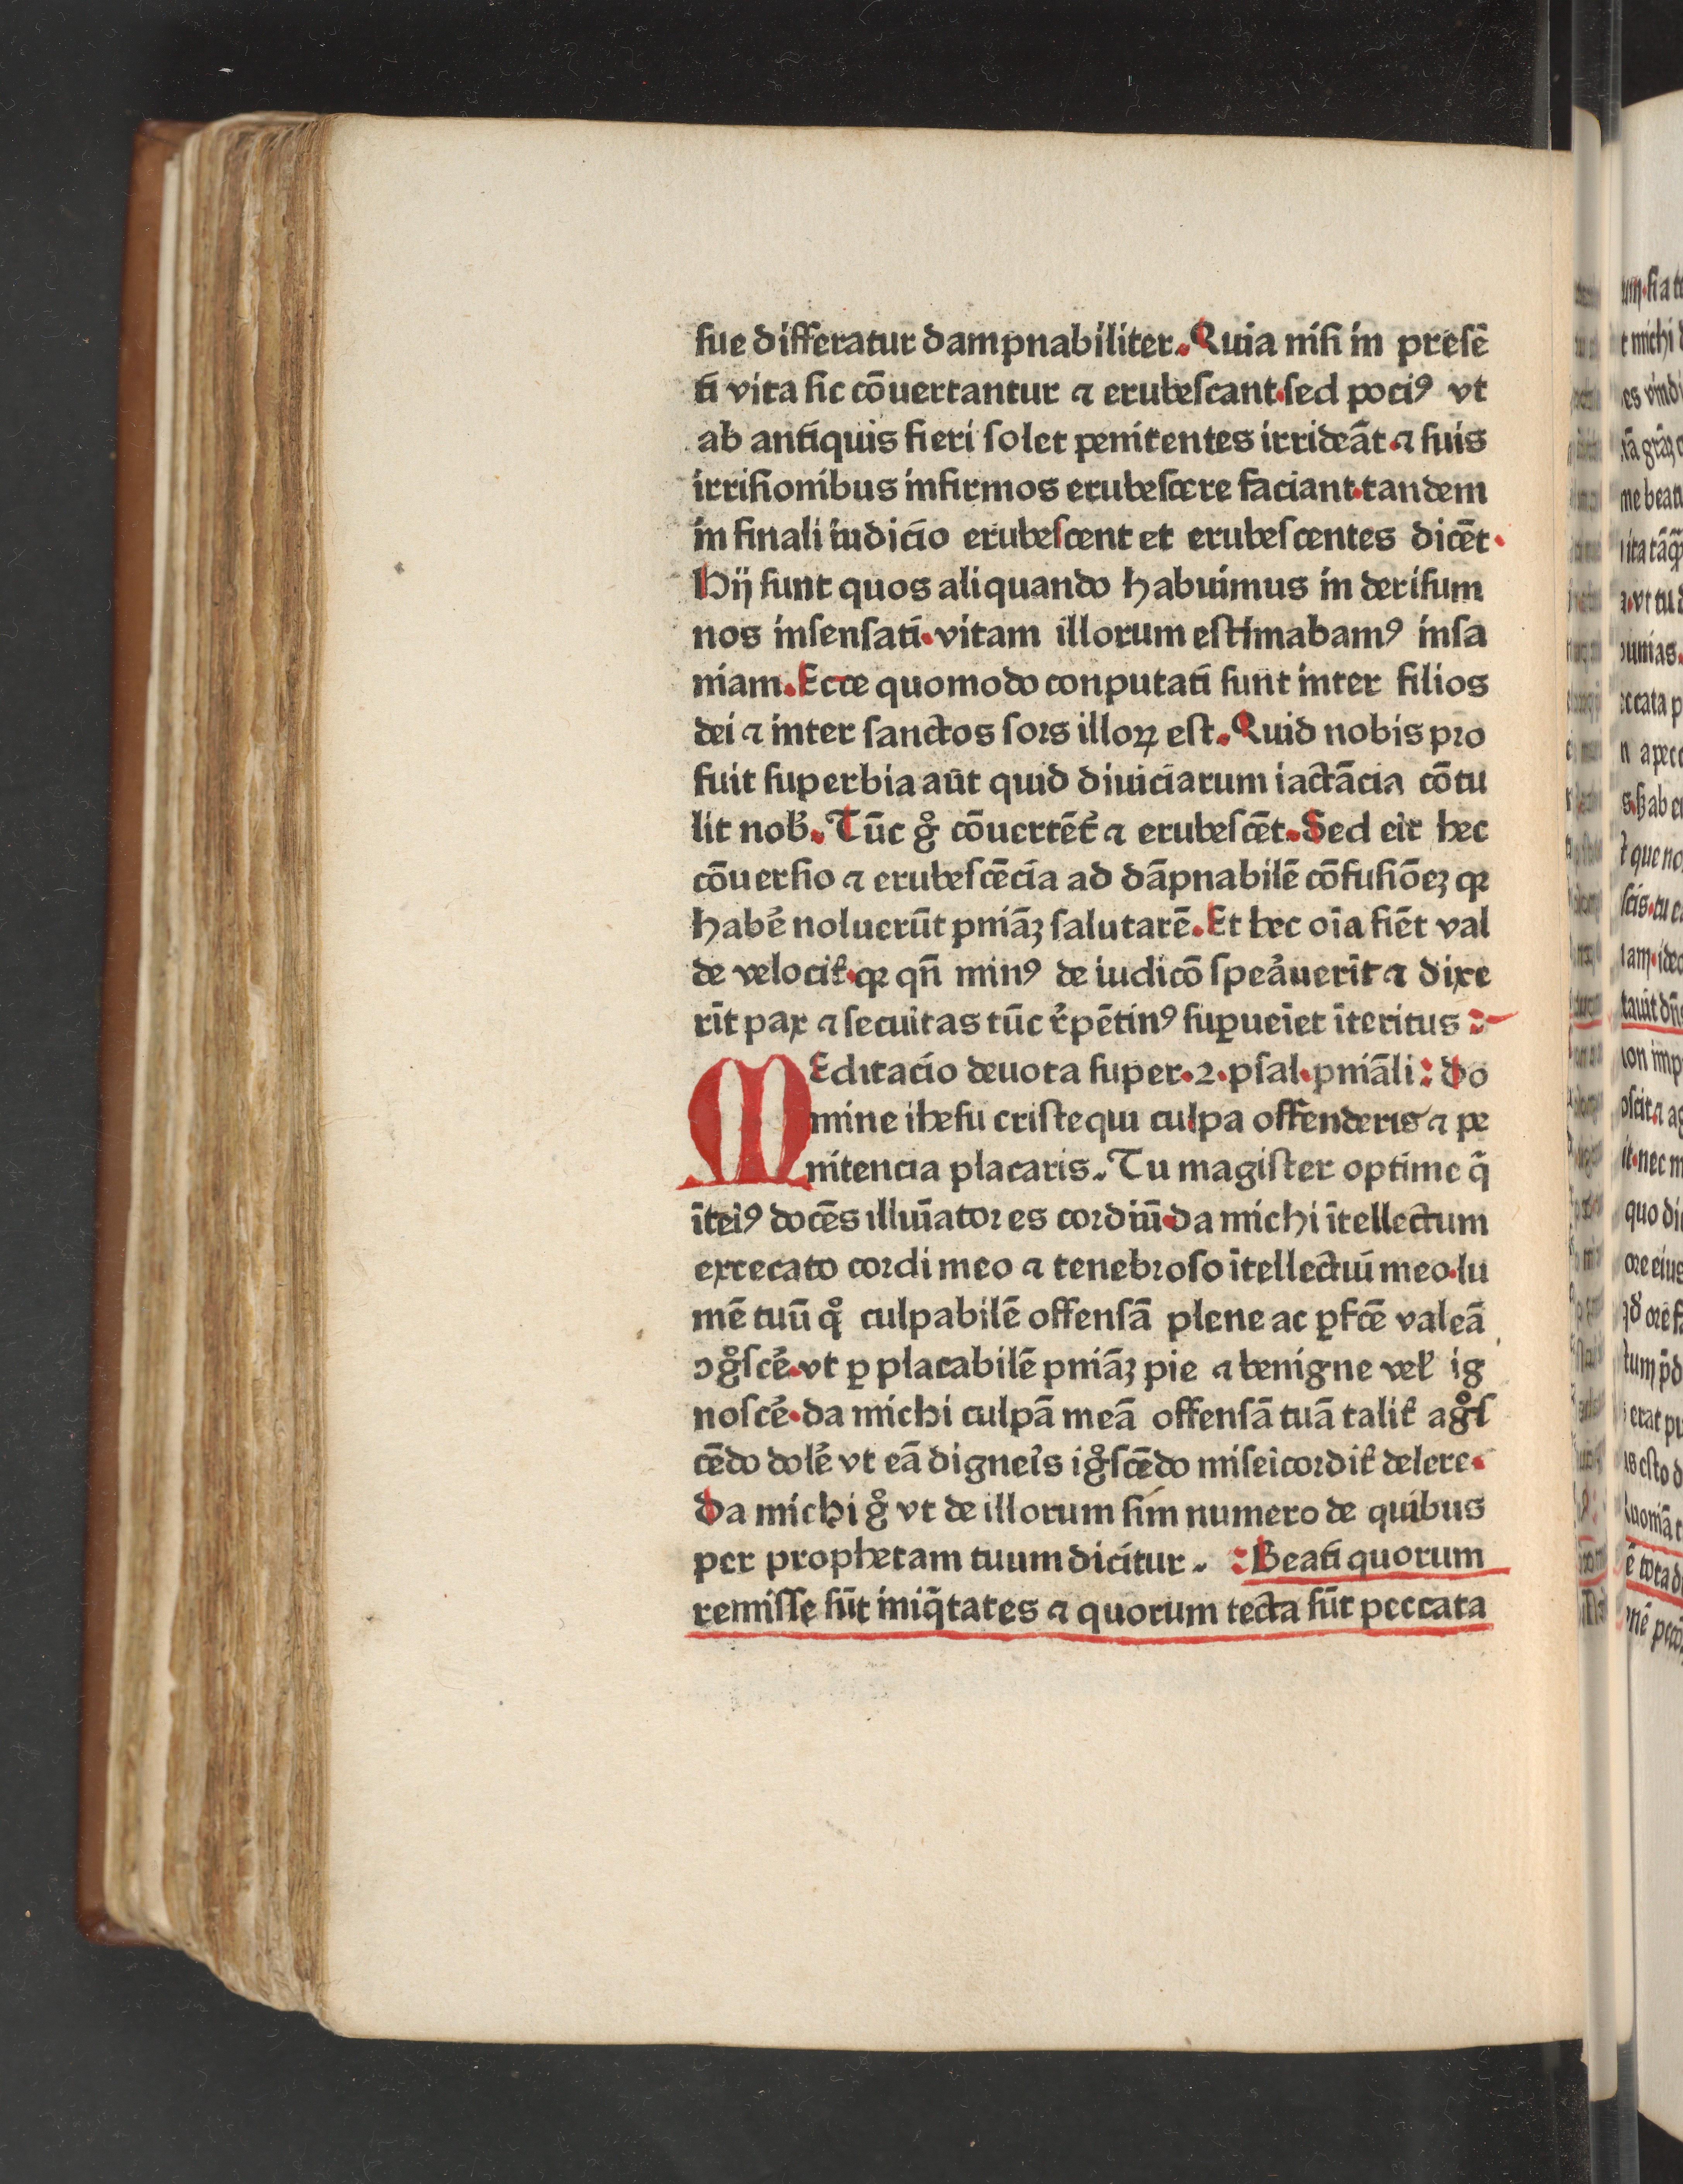 sue differatur dampnabiliter. Quia nisi in presē
ti vita sic cōuertantur ⁊ erubescant. sed pociꝰ vt
ab antiquis fieri solet penitentes irrideāt. ⁊ suis
irrisionibus infirmos erubescere faciant. tandem
in finali iudicio erubescent et erubescentes dicēt.
Hij sunt quos aliquando habuimus in derisum
nos insensati. vitam illorum estimabamꝰ insa
niam. Ecce quomodo conputati sunt inter filios
dei ⁊ inter sanctos sors illoꝝ est. Quid nobis pro
fuit superbia aūt quid diuiciarum iactācia cōtu
lit nob̄. Tūc gͦ cōuertēt᷑ ⁊ erubescēt. Sed erit hec
cōuersio ⁊ erubescēcia ad dāpnabilē cōfusiōeꝫ qꝛ
habe᷑ noluerūt pniāꝫ salutarē. Et hec oīa fiēt val
de velocit᷑. qꝛ qn̄ minꝰ de iudicō spea᷑uerīt ⁊ dixe
rīt pax ⁊ secuitas tūc r᷑pētinꝰ suꝑueīet īteritus :
MEditacio deuota super. 2. psal. pniāli : Do
mine ihesu criste qui culpa offenderis ⁊ pe
nitencia placaris. Tu magister optime q̄
īteiꝰ docēs illuīatores cordiū. da michi ītellectum
excecato cordi meo ⁊ tenebroso ītellectui meo. lu
mē tuū qͦ culpabilē offensā plene ac ꝑfcē valeā
ɔgͦsce᷑. vt ꝑ placabilē pniāꝫ pie ⁊ benigne vel᷑ ig
nosce᷑. da michi culpā meā offensā tuā talit᷑ agͦs
cēdo dole᷑ vt eā dignei᷑s igͦscēdo miseicordit᷑ delere.
Da michi gͦ vt de illorum sim numero de quibus
per prophetam tuum dicitur. : Beati quorum
remisse sūt iniq̄tates ⁊ quorum tecta sūt peccata